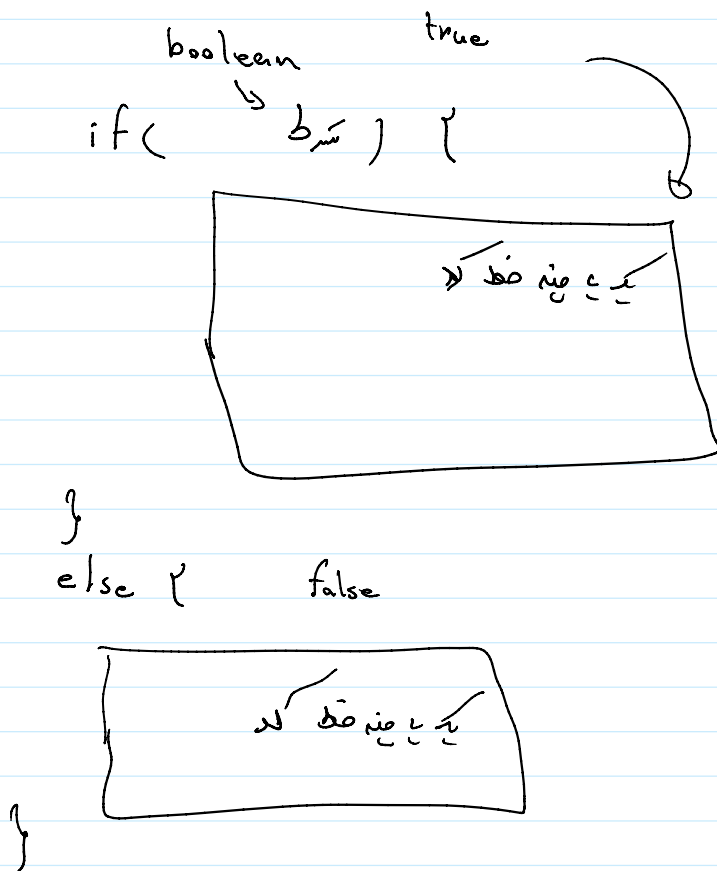 boolean true
if( شرط ) {
یک یا چند خط کد
}
else { false
یک یا چند خط کد
}